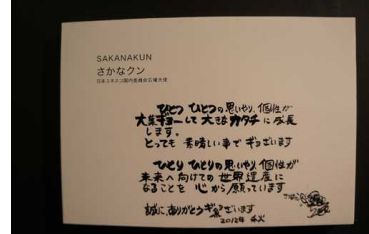 SAKANAKUN
さかなクン
日本ユネスコ国内委員会広報大使
ひとつ ひとつの思いやり、個性が
大漁ギョーして大きなカタチに成長
します。
とっても 素晴しい事で ギョざいます
ひとり ひとりの思いやり、個性が
未来へ向けての世界遺産に
なることを 心から願っています
誠に、ありがとうギョざいます
2012年 秋